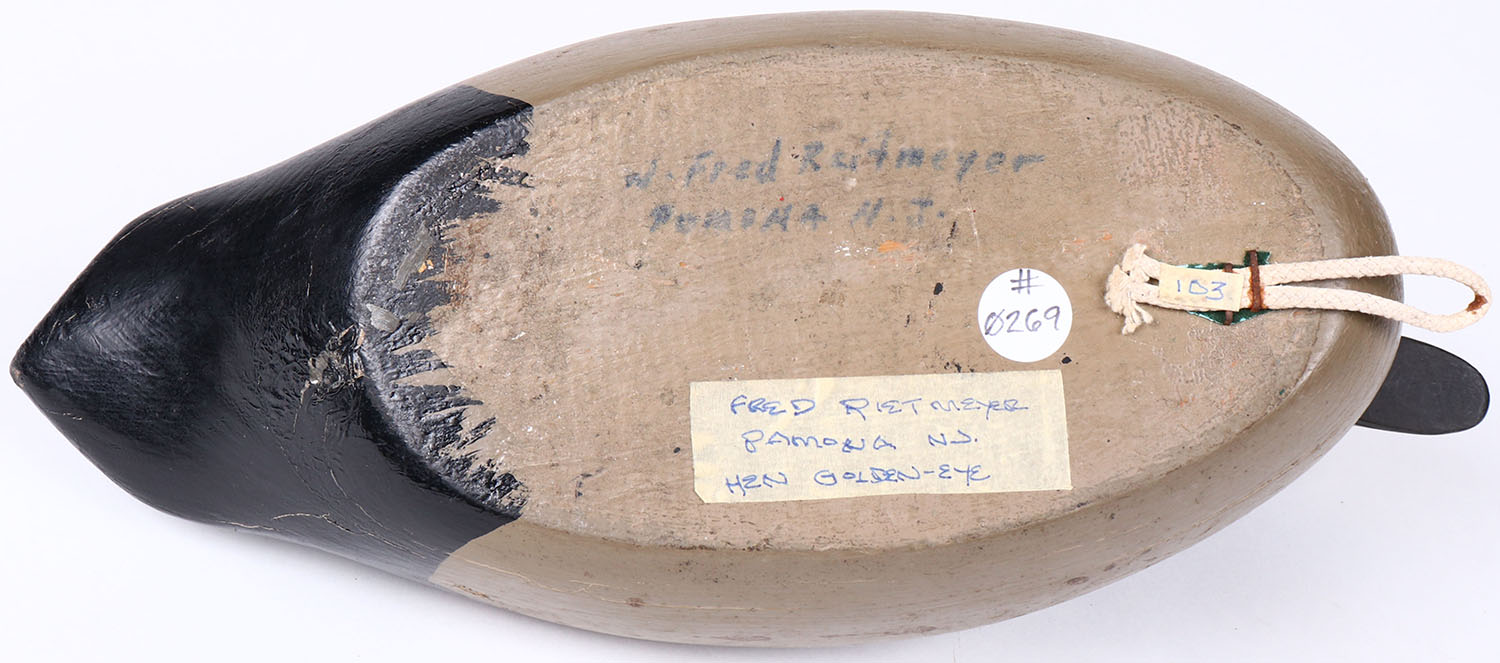 W. Fred Reitmeyer
POMONA N.J.
#
0269
103
FRED RIETMEYER
PAMONA NJ.
HEN GOLDEN-EYE